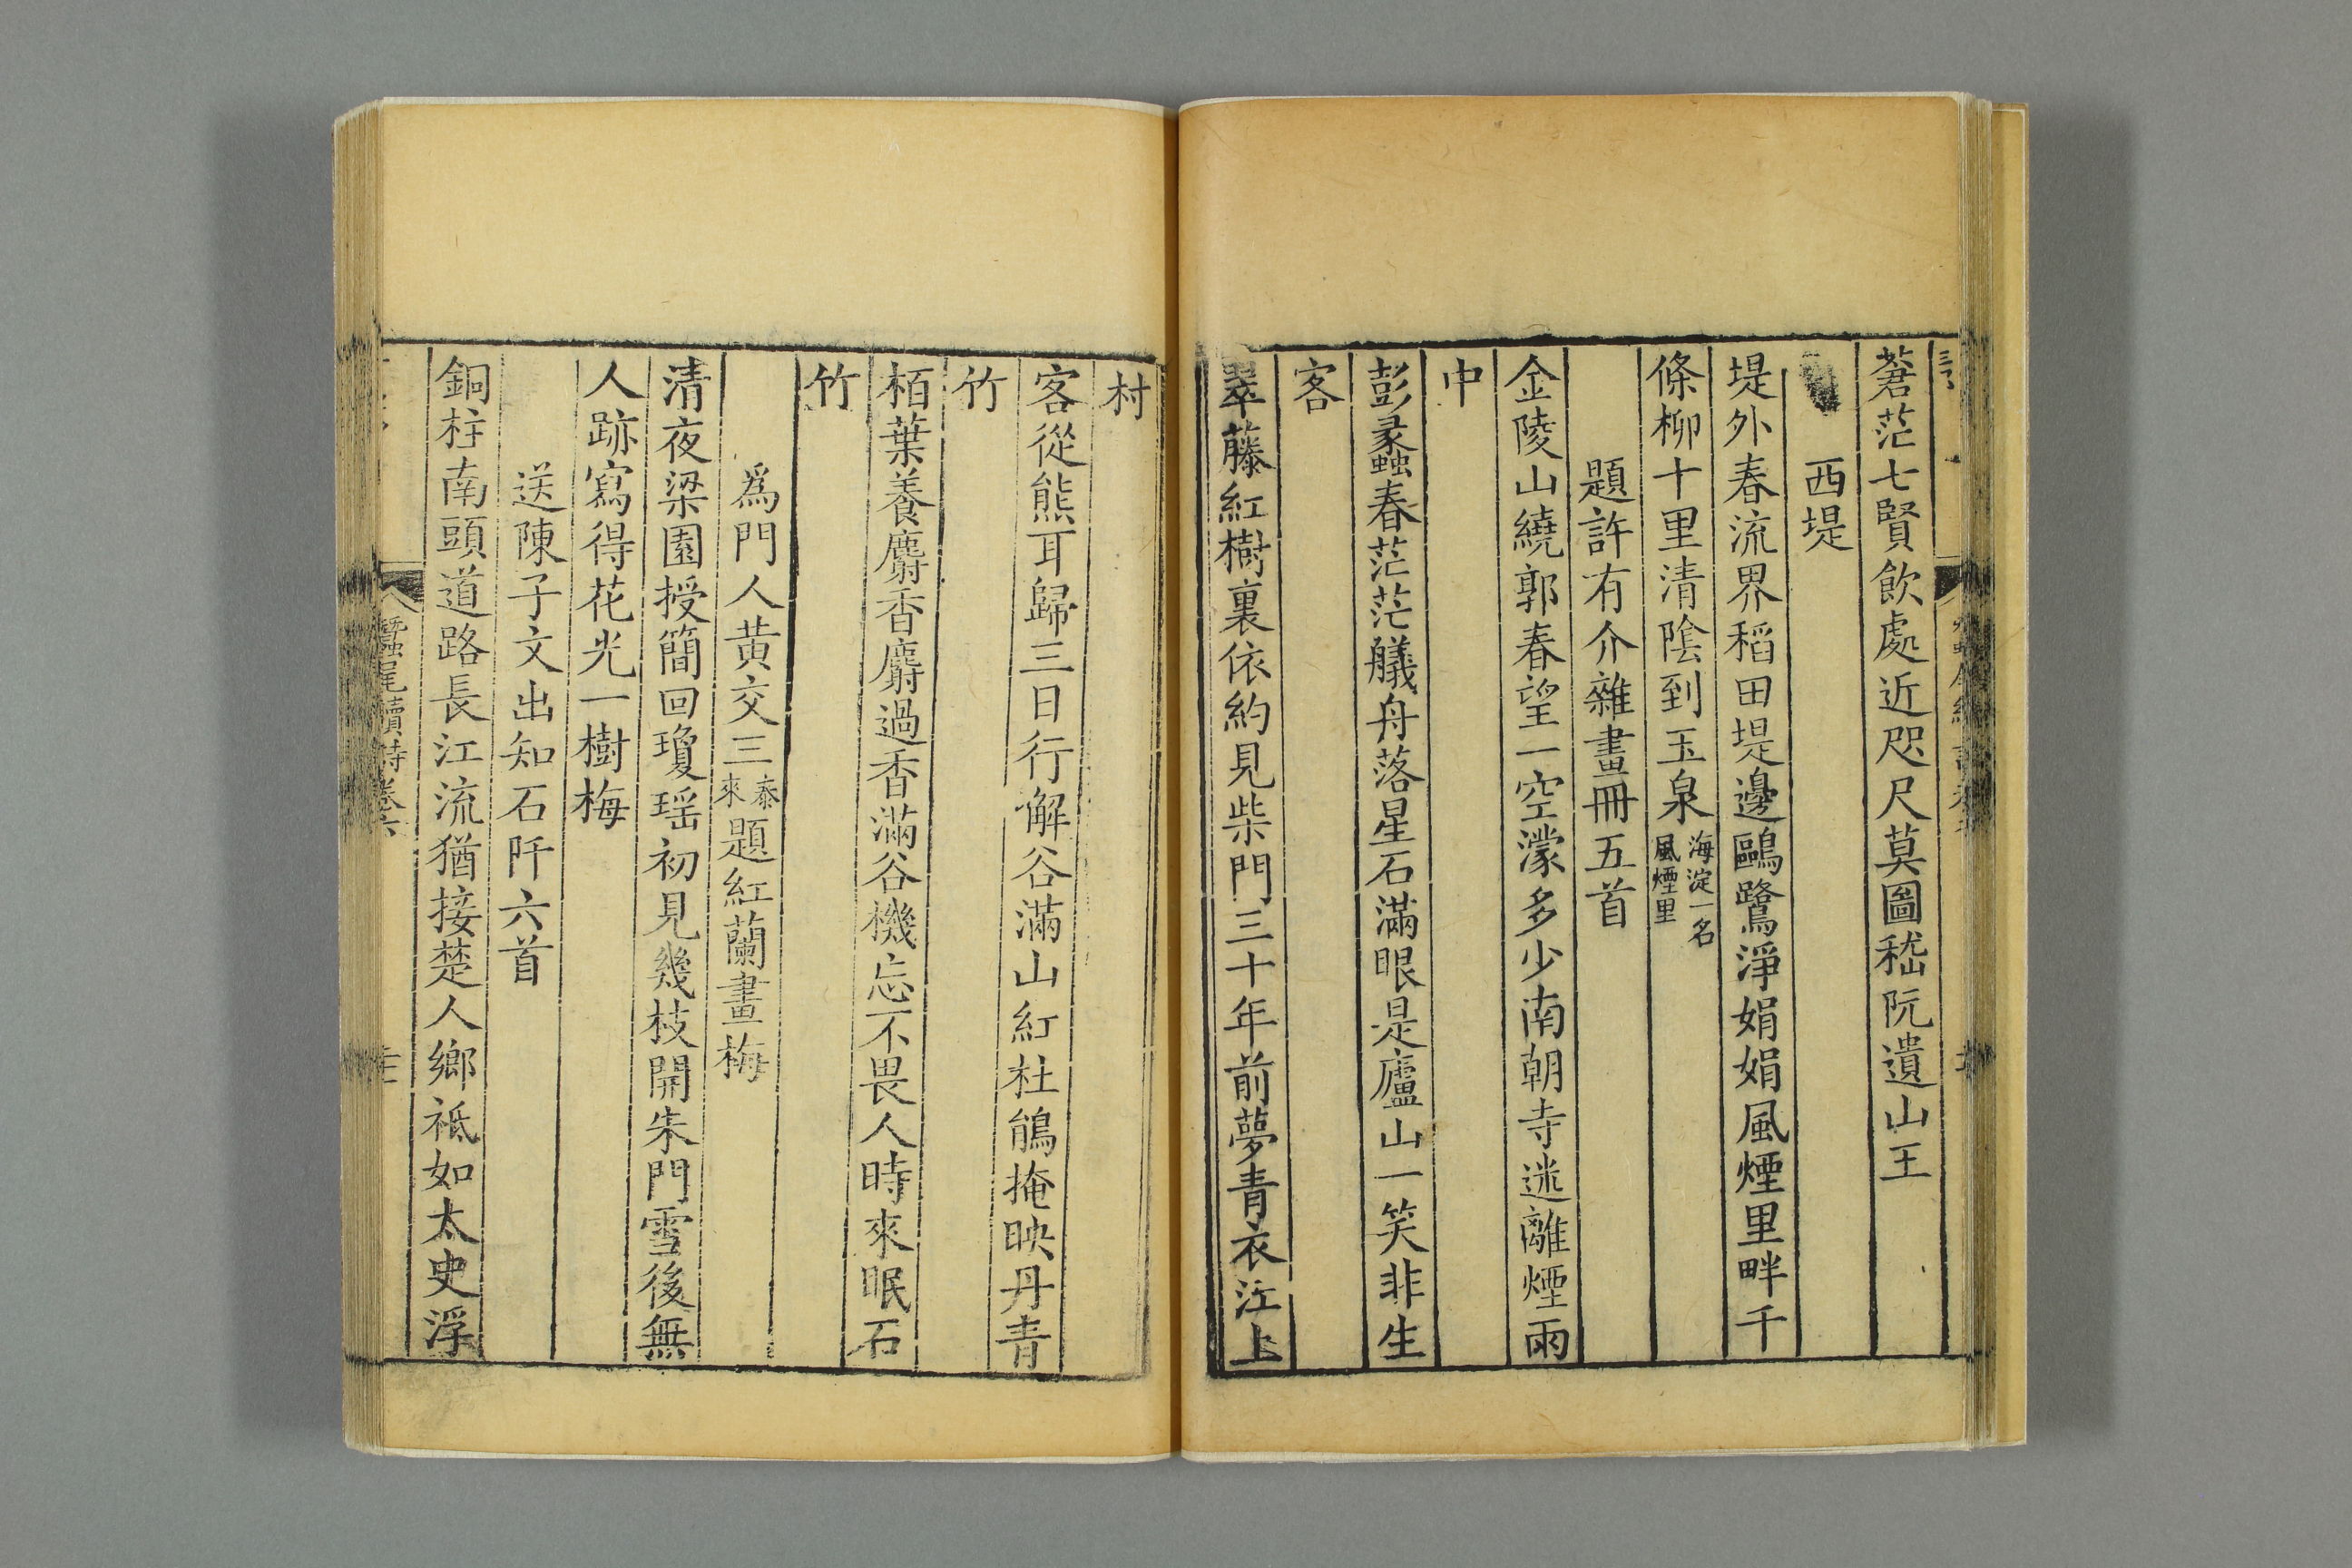 蒼茫七賢飲處近咫尺莫圖嵇阮遺山王
西堤
堤外春流界稻田堤邊鷗鷺淨娟娟風煙里畔千
條柳十里清陰到玉泉海淀一名風煙里
題許有介雜畫冊五首
金陵山繞郭春望一空濛多少南朝寺迷離煙雨
中
彭蠡春茫茫艤舟落星石滿眼是廬山一笑非生
客
翠藤紅樹裏依約見柴門三十年前夢青衣江上
村
客從熊耳歸三日行解谷滿山紅杜鵑掩映丹青
竹
栢葉養麝香麝過香滿谷機忘不畏人時來眠石
竹
為門人黃交三泰來題紅蘭畫梅
清夜梁園授簡回瓊瑶初見幾枝開朱門雪後無
人跡寫得花光一樹梅
送陳子文出知石阡六首
銅柱南頭道路長江流猶接楚人鄉祗如太史浮
蠶尾續詩卷六